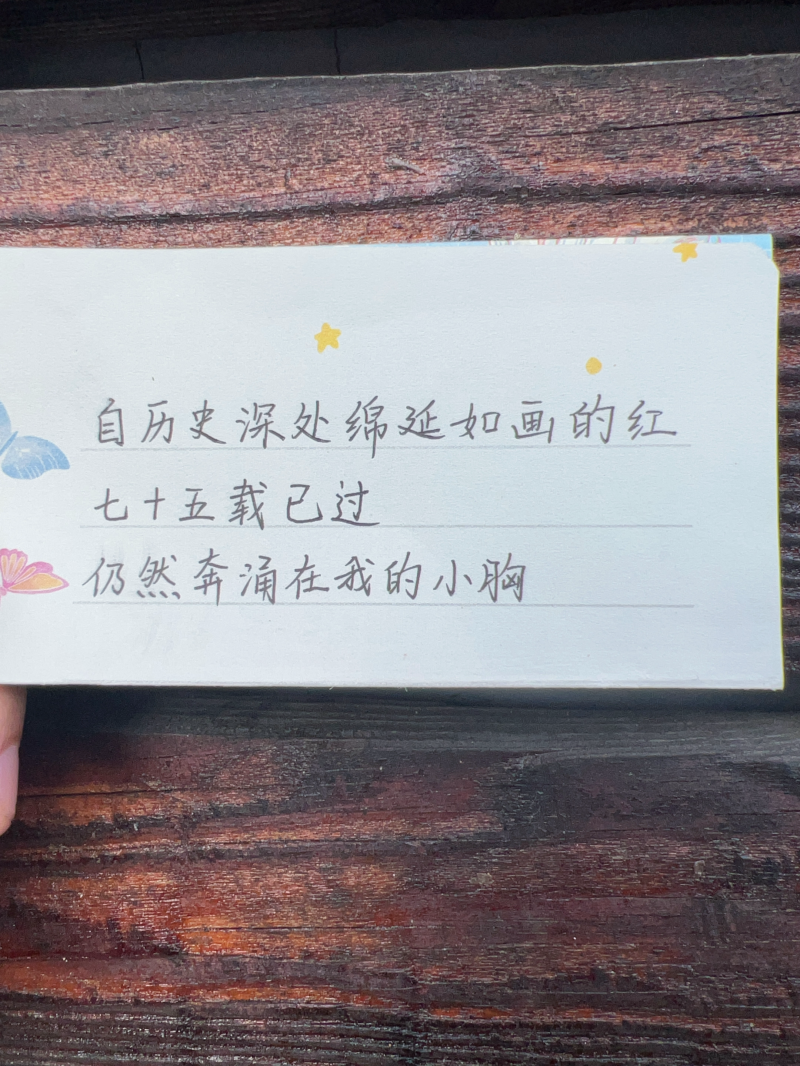 自历史深处绵延如画的红
七十五载已过
仍然奔涌在我的小胸